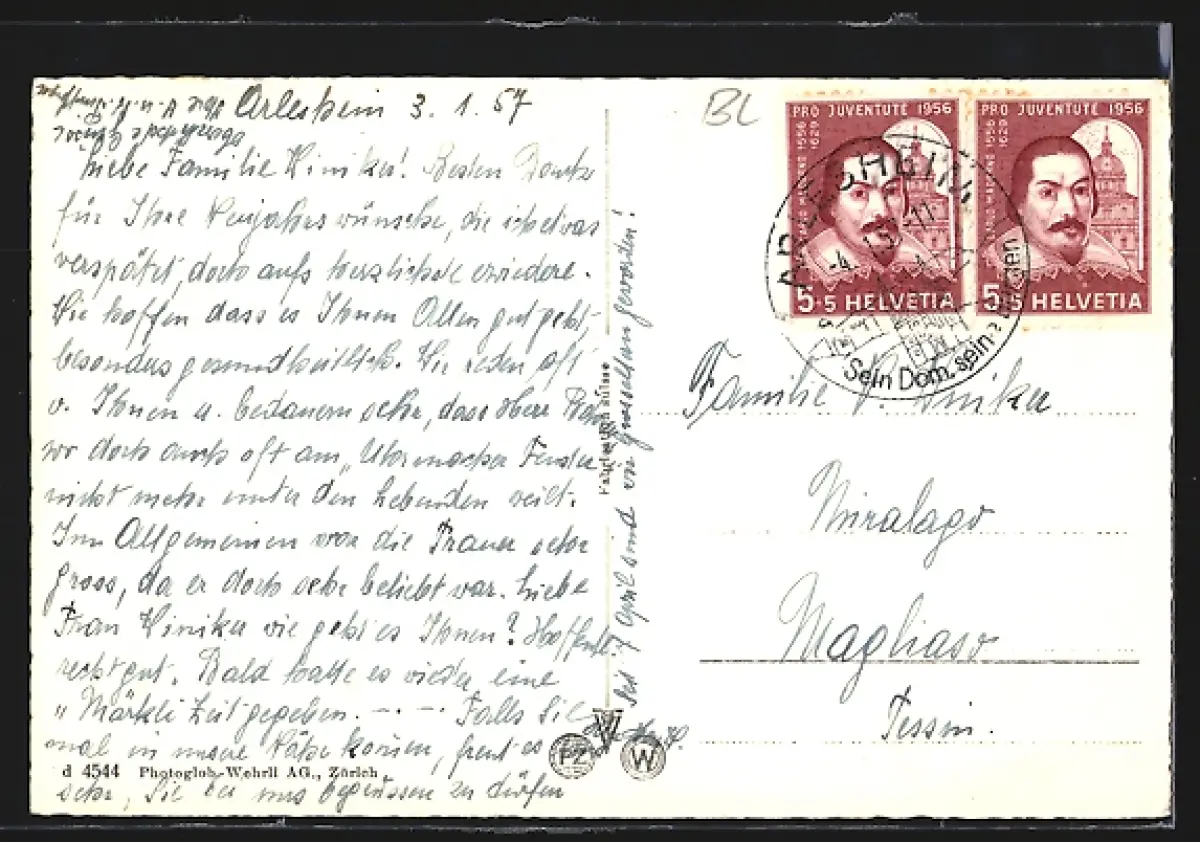 Arlesheim 3. 1. 57
Liebe Familie Kiniker! Besten Dank
für Ihre Neujahrswünsche, die ich etwas
verspätet, doch aufs herzlichste erwiedere.
Wir hoffen dass es Ihnen Allen gut geht,
besonders gesundheitlich. Wir reden oft
v. Ihnen u. bedauern sehr, dass Herr
wo doch auch oft am Fenster
nicht mehr unter den Lebenden weilt.
Im Allgemeinen war die Trauer sehr
gross, da er doch sehr beliebt war. Liebe
Frau Kiniker wie geht es Ihnen? Hoffentl.
recht gut. Bald hatte es wieder eine
„Märkli Zeit gegeben. -.-.- Falls Sie
mal in unsere Nähe kommen, freut es
sehr, Sie bei uns begrüssen zu dürfen
Seit 7 April sind wir Grosseltern geworden!
d 4544 Photoglob-Wehrli AG., Zürich
PZ
W
BL
PRO JUVENTUTE 1956
CARLO MADERNO 1556
1629
5+5 HELVETIA
PRO JUVENTUTE 1956
CARLO MADERNO 1556
1629
5+5 HELVETIA
ARLESHEIM
Sein Dom, sein
Familie Kiniker
Miralago
Magliaso
Tessin.